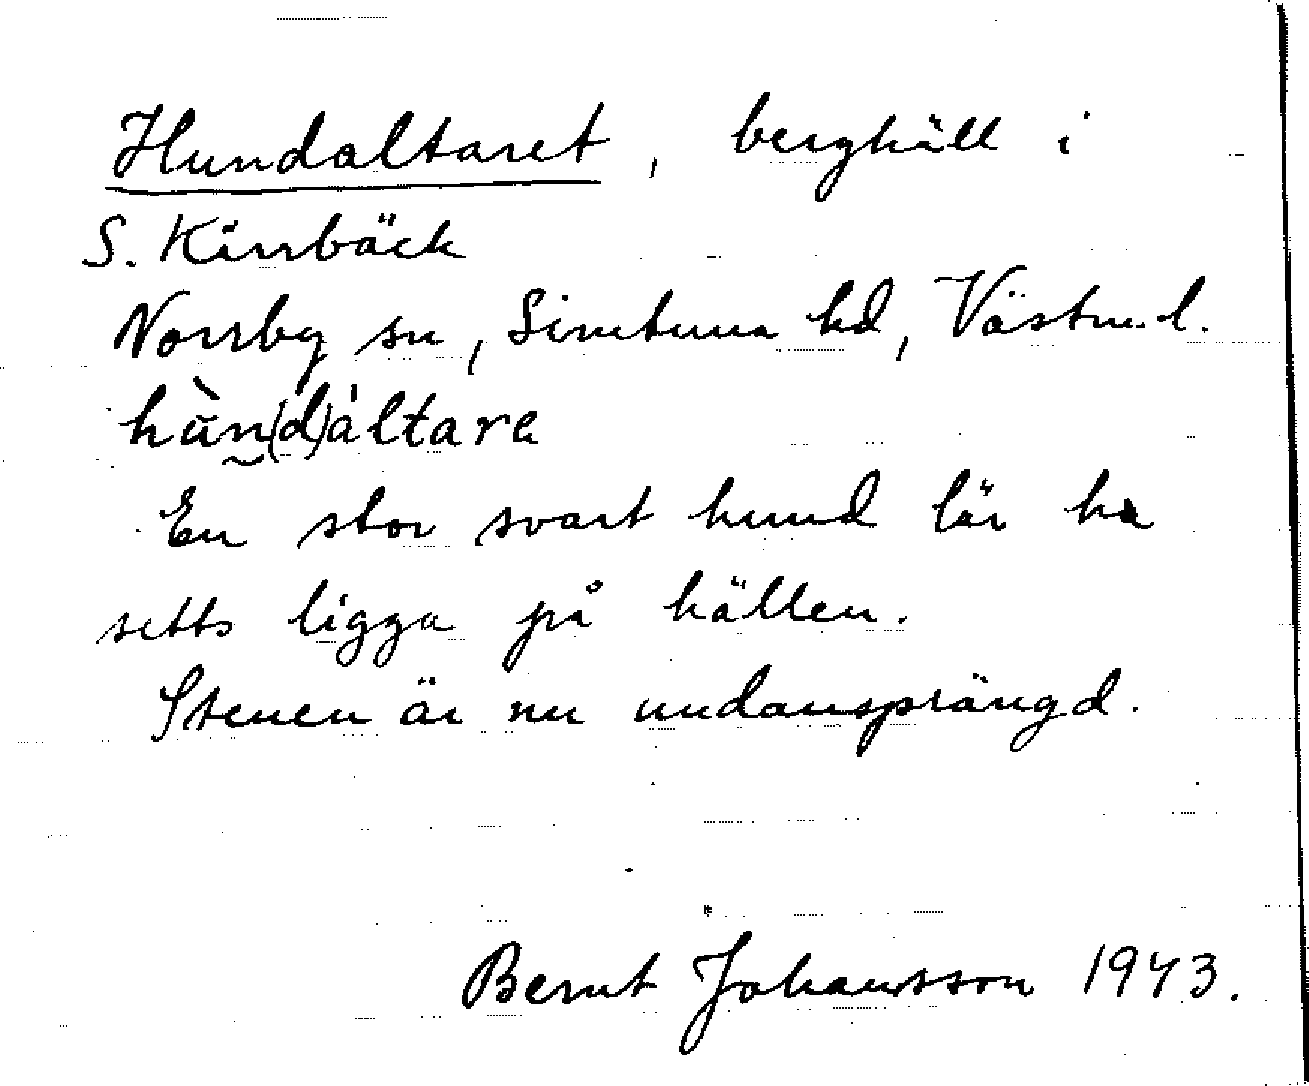 Hundaltaret, berghäll i
S. Kärrbäck
Norrby sn, Simtuna hd, Västm.l.
hùn(d)àltarə
En stor svart hund lär ha
setts ligga på hällen.
Stenen är nu undansprängd.
Bernt Johansson 1943.